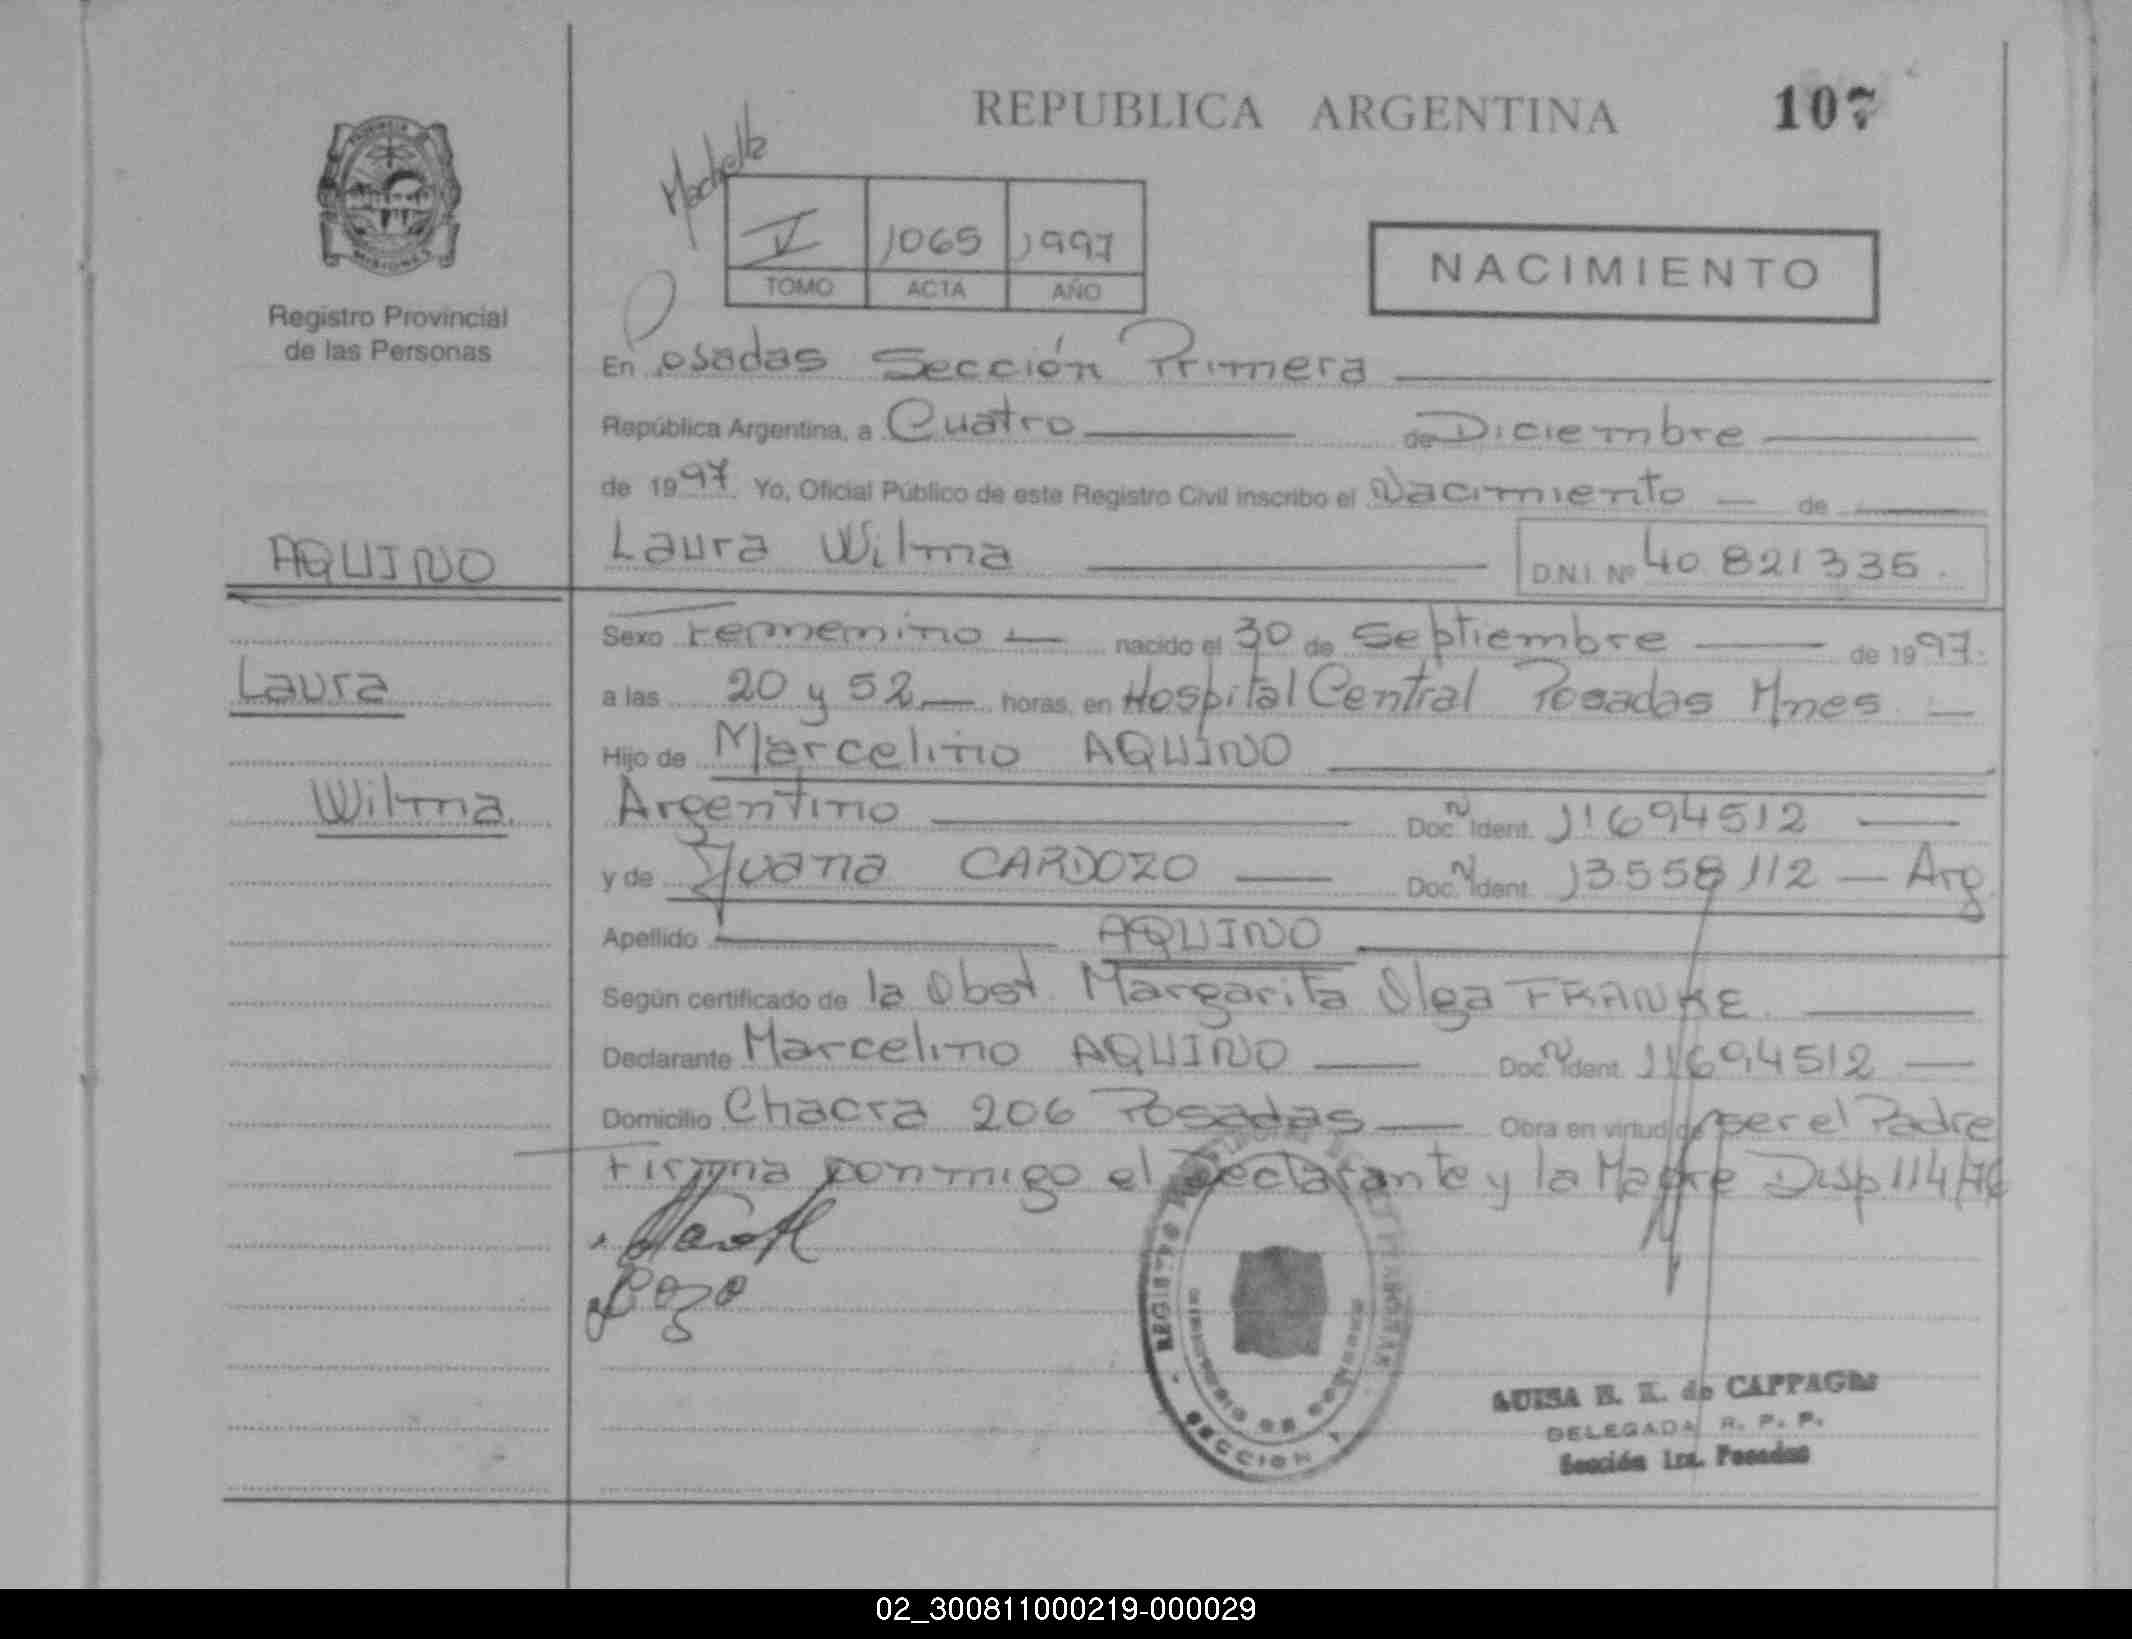 REPUBLICA ARGENTINA
107
V 1065 1997
TOMO ACTA AÑO
NACIMIENTO
PROVINCIA
MISIONES
Registro Provincial
de las Personas
AQUINO
Laura
Wilma
En Posadas Sección Primera
República Argentina, a Cuatro de Diciembre
de 1997 Yo, Oficial Público de este Registro Civil inscribo el Nacimiento de
Laura Wilma D.N.I. Nº 40 821335.
Sexo Femenino nacido el 30 de Septiembre de 1997.
a las 20 y 52 horas, en Hospital Central Posadas Mnes
Hijo de Marcelino AQUINO
Argentino Doc. N Ident. 11694512
y de Juana CARDOZO Doc. N Ident. 13558112 - Arg.
Apellido AQUINO
Según certificado de la Obst. Margarita Olga FRANKE
Declarante Marcelino AQUINO Doc. N Ident. 11694512
Domicilio Chacra 206 Posadas Obra en virtud de ser el Padre
Firma conmigo el Declarante y la Madre Disp 114/76
REGISTRO
SECCION 1
LUISA E. K. de CAPPAGLI
DELEGADA R. P. P.
Sección 1ra. Posadas
02_300811000219-000029